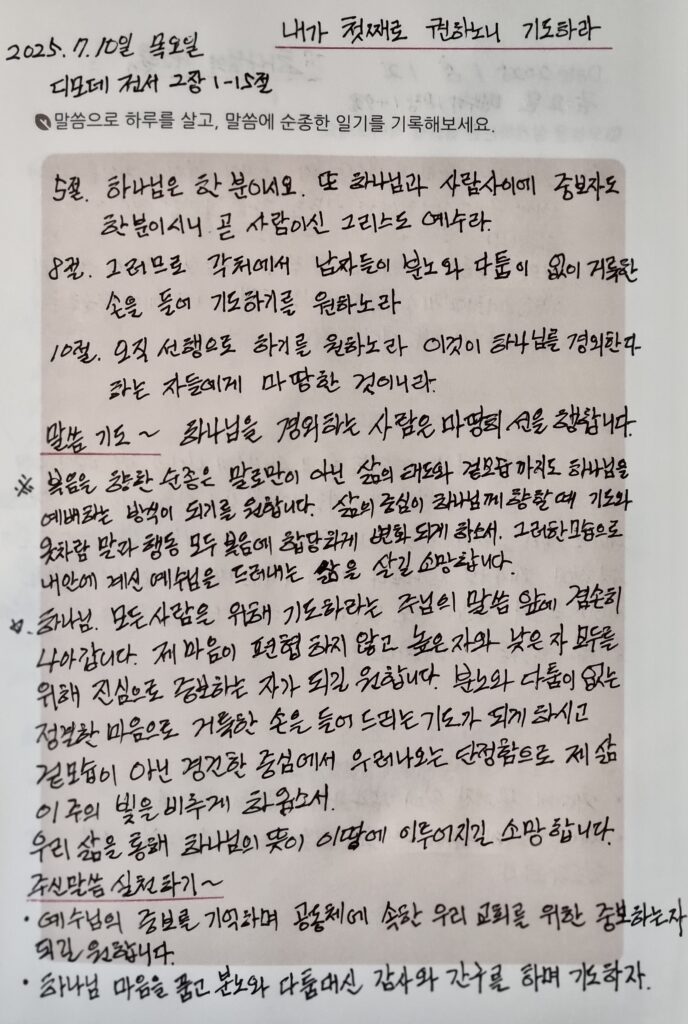 내가 첫째로 권하노니 기도하라
2025. 7. 10일 목요일
디모데 전서 2장 1-15절
말씀으로 하루를 살고, 말씀에 순종한 일기를 기록해보세요.
5절. 하나님은 한 분이시오. 또 하나님과 사람사이에 중보자도
한분이시니 곧 사람이신 그리스도 예수라.
8절. 그러므로 각처에서 남자들이 분노와 다툼이 없이 거룩한
손을 들어 기도하기를 원하노라
10절. 오직 선행으로 하기를 원하노라 이것이 하나님를 경외한다
하는 자들에게 마땅한 것이니라.
말씀 기도~ 하나님을 경외하는 사람은 마땅히 선을 행합니다.
※ 복음을 향한 순종은 말로만이 아닌 삶의 태도와 겉모습까지도 하나님을
예배하는 방식이 되기를 원합니다. 삶의 중심이 하나님께 향할 때 기도와
옷차람 말과 행동 모두 복음에 합당하게 변화 되게 하소서. 그러한모습으로
내안에 계신 예수님을 드러내는 삶을 살길 소망합니다.
ㅁ. 하나님. 모든사람을 위해 기도하라는 주님의 말씀 앞에 겸손히
나아갑니다. 제 마음이 편협 하지 않고 높은 자와 낮은 자 모두를
위해 진심으로 중보하는 자가 되길 원합니다. 분노와 다툼이 없는
정결한 마음으로 거룩한 손을 들어 드리는 기도가 되게 하시고
겉모습이 아닌 경건한 중심에서 우러나오는 단정함으로 제 삶
이 주의 빛을 비추게 하옵소서.
우리 삶을 통해 하나님의 뜻이 이땅에 이루어지길 소망합니다.
주신말씀 실천하기~
· 예수님의 중보를 기억하며 공동체에 속한 우리 교회를 위한 중보하는자
되길 원합니다.
· 하나님 마음을 품고 분노와 다툼대신 감사와 간구를 하며 기도하자.